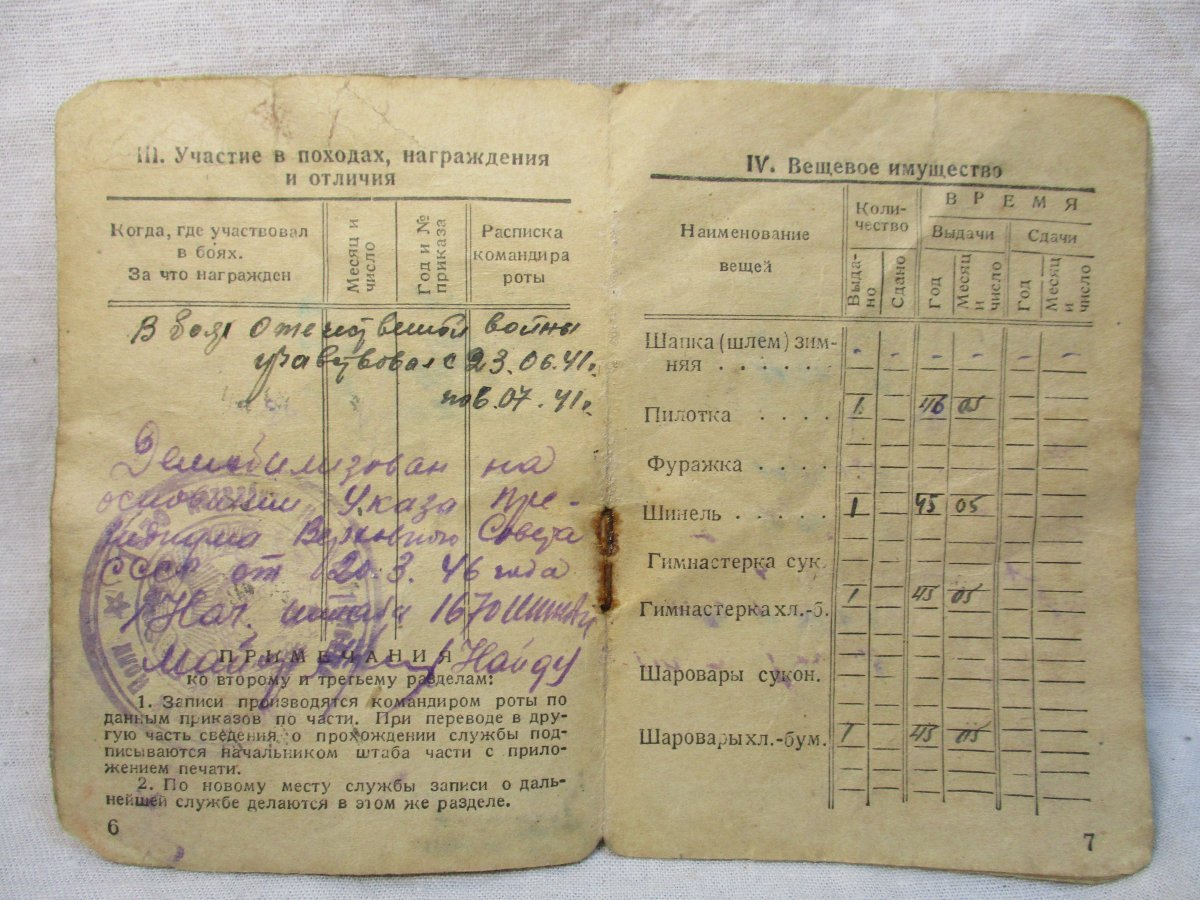 III. Участие в походах, награждения
и отличия
Когда, где участвовал
в боях.
За что награжден
Месяц и
число
Год и №
приказа
Расписка
командира
роты
В боях Отечественной войны
участвовал с 23.06.41г.
по 6.07.41г.
Демобилизован на
основании Указа Пре-
зидиума Верховного Совета
СССР от 20.3.46 года
Нач. штаба 1670
Майор
ПРИМЕЧАНИЯ
ко второму и третьему разделам:
1. Записи производятся командиром роты по
данным приказов по части. При переводе в дру-
гую часть сведения о прохождении службы под-
писываются начальником штаба части с прило-
жением печати.
2. По новому месту службы записи о даль-
нейшей службе делаются в этом же разделе.
6
IV. Вещевое имущество
Наименование
вещей
Коли-
чество
ВРЕМЯ
Выдачи
Сдачи
Выда-
но
Сдано
Год
Месяц
и
число
Год
Месяц
и
число
Шапка (шлем) зим-
няя . . . . . . - - - - - -
Пилотка . . . . 1 — 46 05 — —
Фуражка . . . .
Шинель . . . . . 1 — 45 05 — —
Гимнастерка сук.
Гимнастерка хл.-б. 1 — 45 05 — —
Шаровары сукон.
Шаровары хл.-бум. 1 — 45 05 — —
7